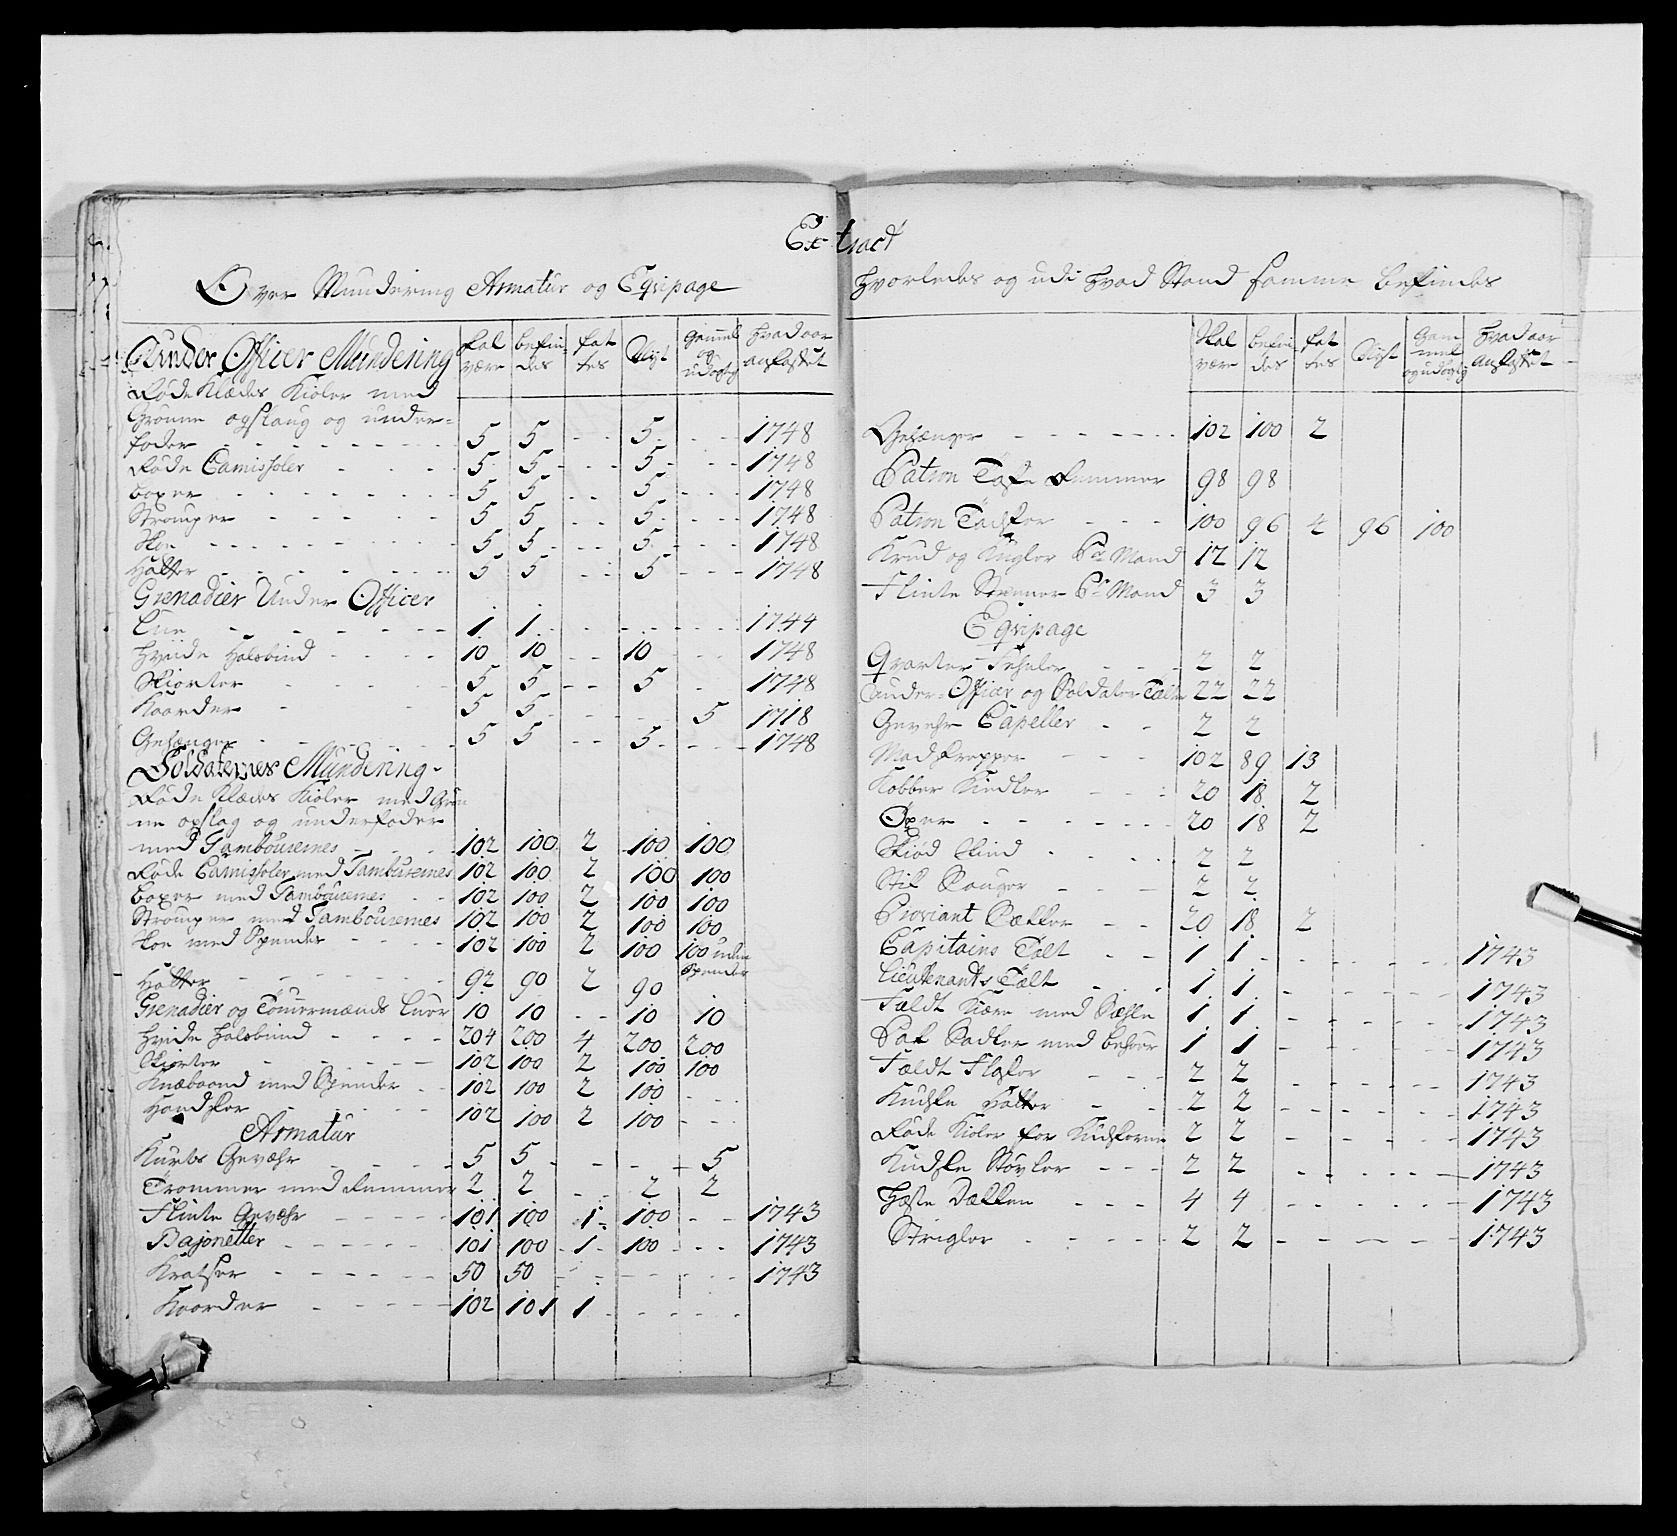 Extract
Over Mundering Armatur og Eqvipage
Hvorledes og udi hvad Stand samme befindes
Under Officer Mundering | skal være | befindes | fattes | Nÿt | Gammel og udÿgtig | Hvad aar anskaffet
Røde Klædes Kioler med
Grønne opslaug og under=
foder - - 5 5 - - 5 - - 1748
Røde Camisholer - - 5 5 - - 5 - - 1748
boxer - - 5 5 - - 5 - - 1748
Strømper - - 5 5 - - 5 - - 1748
Skoe - - 5 5 - - 5 - - 1748
Hatter - - 5 5 - - 5 - - 1748
Grenadier Under Officer
Lue - - 1 1 - - 1744
Hviide Halsbind - - 10 10 - - 10 - - 1748
Skiorter - - 5 5 - - 5 - 1748
Kaarder - - 5 5 - - 5 1718
Gehænger - - 5 5 - - 5 - - 1748
Soldaternes Mundering
Røde Klædes Kioler med Grøn
ne opslag og underfoder
med Tambourernes - 102 100 2 100 100
Røde Camisholer med Tambourernes 102 100 2 100 100
boxer med Tambourernes - - 102 100 2 100 100
Strømper med Tambourernes 102 100 2 100 100
Skoe med Spender - - 102 100 2 100 100 uden Spender
Hatter - - 92 90 2 90
Grenadier og Tömermænds Luer 10 10 - - 10 10
Hvide Halsbind - - 204 200 4 200 200
Skiorter - - 102 100 2 100 100
Knæbaand med Spender - - 102 100 2 100 - -
Handsker - - 102 100 2 100 - -
Armatur
Kurtz Gevæhr - - 5 5 - - 5
Trommer med Remmer 2 2 - - 2 2
Flinte Gevæhr - - 101 100 1 100 - - 1743
Bajonetter - - 101 100 1 100 - - 1743
Kratser - - 50 50 - - 1743
Kaarder - - 102 101 1 - -
skal være | befindes | fattes | Nÿt | Gammel og udÿgtig | Hvad aar anskaffet
Gehænger - - 102 100 2
Patron Taske Remmer 98 98
Patron Tasker - - 100 96 4 96 100
Krud og Kugler Pr Mand 12 12
Flinte Steener Pr Mand 3 3
Eqvipage
Qvarteer - - 2 2
Under-Officer og Soldater Telte 22 22
Gevehr Capeller - - 2 2
Madkropper - - 102 89 13
Kobber Kiedler - - 20 18 2
Öxer - - 20 18 2
Skiød Skind - - 2 2
Stik - - 2 2
Proviant Sækker - - 20 18 2
Capitains Telt - - 1 1 - - 1743
Lieutenants Telt - - 1 1 - - 1743
Feldt Kiære med - 1 1 - - 1743
Pak Sadler med behør 1 1 - - 1743
Feldt Flasker - - 2 2 - - 1743
Kudske Hatter - - 2 2 - - 1743
Røde Kioler for Kudskerne 2 2 - - 1743
Kudske Støvler - - 2 2 - - 1743
Heste Dækken - - 4 4 - - 1743
Strigler - - 2 2 - - 1743